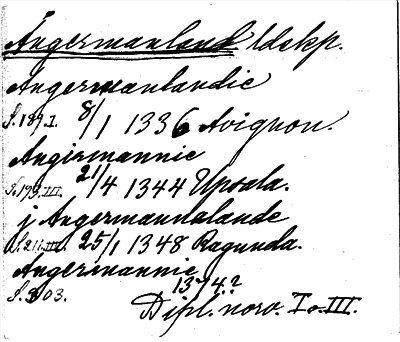 Ångermanland. ldskp.
Angermanlandie
S. 189. I. 8/1 1336 Avignon.
Angiermannie
S. 179. III. 21/4 1344 Upsala.
j Angermannalande
S. 211. III. 25/1 1348 Ragunda.
Angermannie
S. 303. 1374.?
Dipl. norv. To. III.